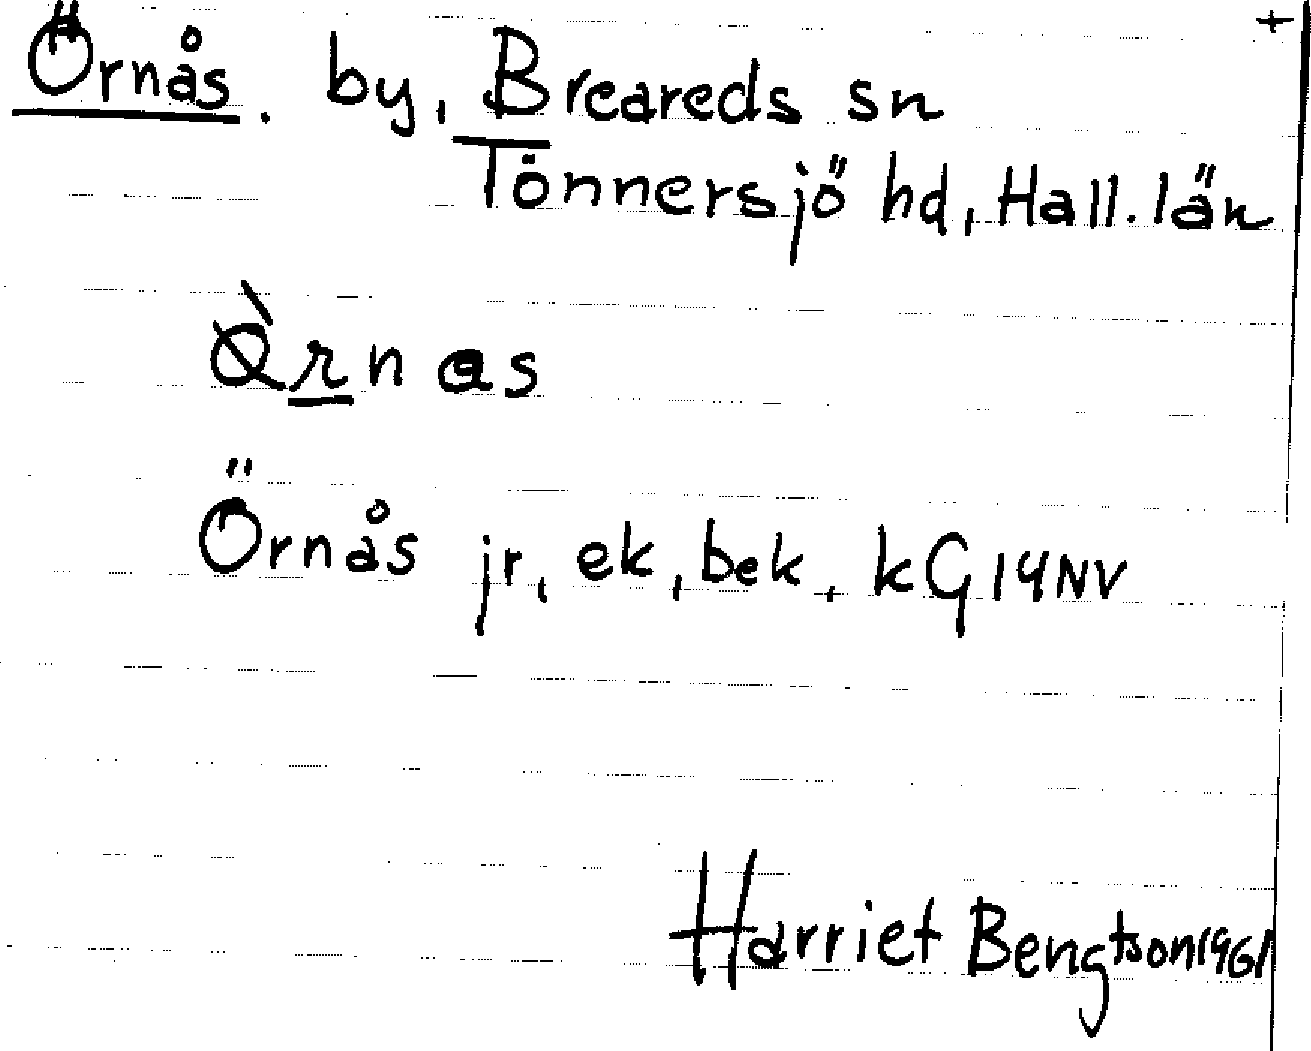 +
Örnås. by, Breareds sn
Tönnersjö hd, Hall. län
Örnås jr, ek, bek, kG14NV
Harriet Bengtson 1961